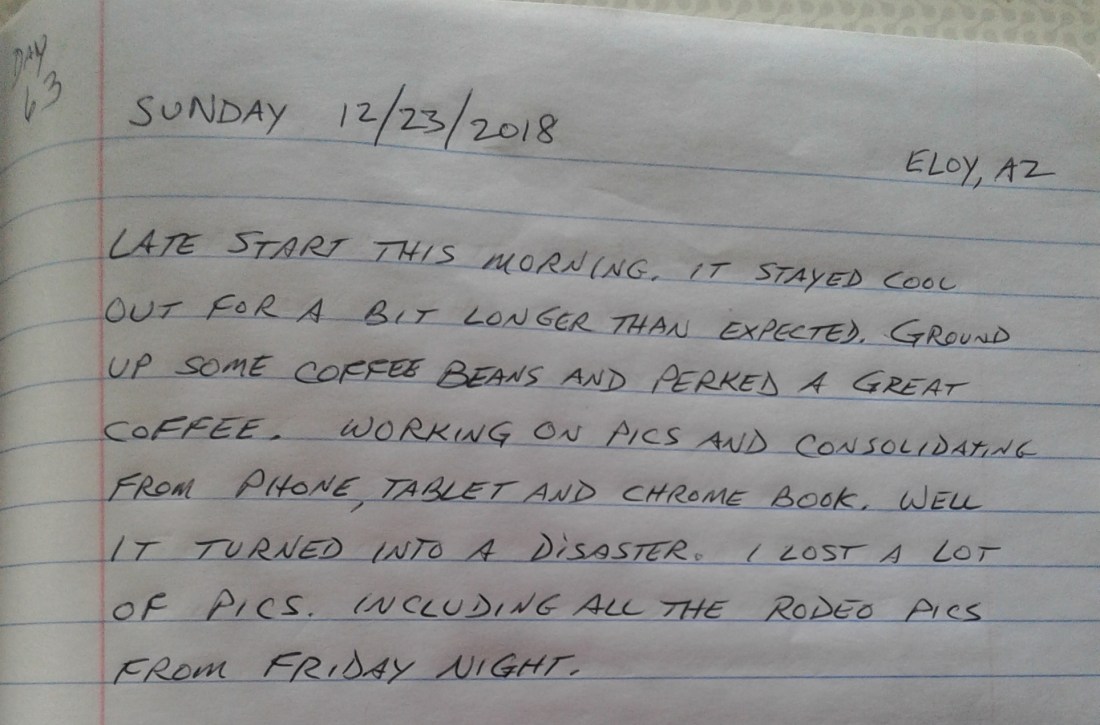 DAY
63
SUNDAY 12/23/2018
ELOY, AZ
LATE START THIS MORNING. IT STAYED COOL
OUT FOR A BIT LONGER THAN EXPECTED. GROUND
UP SOME COFFEE BEANS AND PERKED A GREAT
COFFEE. WORKING ON PICS AND CONSOLIDATING
FROM PHONE, TABLET AND CHROME BOOK. WELL
IT TURNED INTO A DISASTER. I LOST A LOT
OF PICS. INCLUDING ALL THE RODEO PICS
FROM FRIDAY NIGHT.